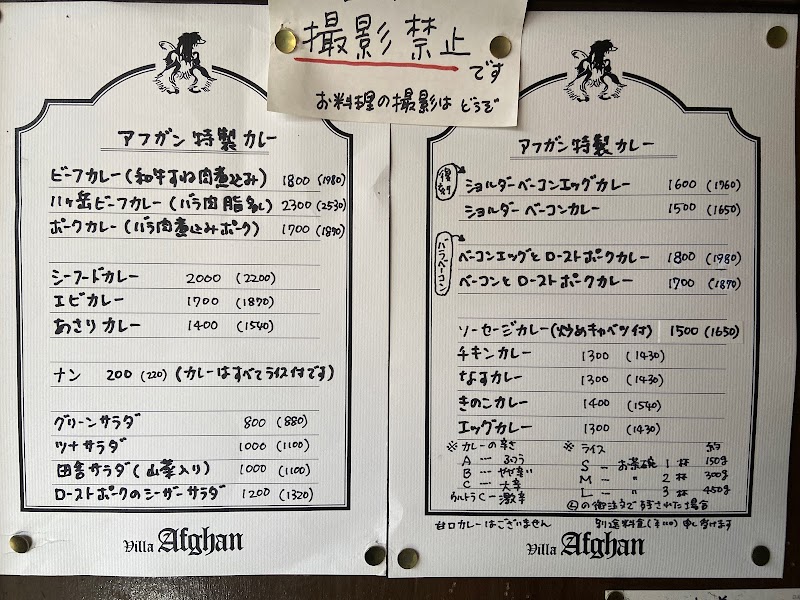 撮影禁止
です
お料理の撮影は どうぞ
アフガン特製カレー
ビーフカレー(和牛すね肉煮込み) 1800 (1980)
八ヶ岳ビーフカレー(バラ肉脂多し) 2300 (2530)
ポークカレー(バラ肉煮込みポーク) 1700 (1870)
シーフードカレー 2000 (2200)
エビカレー 1700 (1870)
あさりカレー 1400 (1540)
ナン 200 (220) (カレーはすべてライス付です)
グリーンサラダ 800 (880)
ツナサラダ 1000 (1100)
田舎サラダ(山菜入り) 1000 (1100)
ローストポークのシーザーサラダ 1200 (1320)
Villa Afghan
アフガン特製カレー
復刻
ショルダーベーコンエッグカレー 1600 (1760)
ショルダーベーコンカレー 1500 (1650)
バラベーコン
ベーコンエッグとローストポークカレー 1800 (1980)
ベーコンとローストポークカレー 1700 (1870)
ソーセージカレー(炒めキャベツ付) 1500 (1650)
チキンカレー 1300 (1430)
なすカレー 1300 (1430)
きのこカレー 1400 (1540)
エッグカレー 1300 (1430)
※カレーの辛さ
A ー ふつう
B ー やや辛い
C ー 大辛
ウルトラC ー 激辛
※ ライス 約
S ー お茶碗 1杯 150g
M ー 〃 2杯 300g
L ー 〃 3杯 450g
Ⓛの御注文で残された場合
甘口カレーはございません
別途料金 申し受けます
Villa Afghan